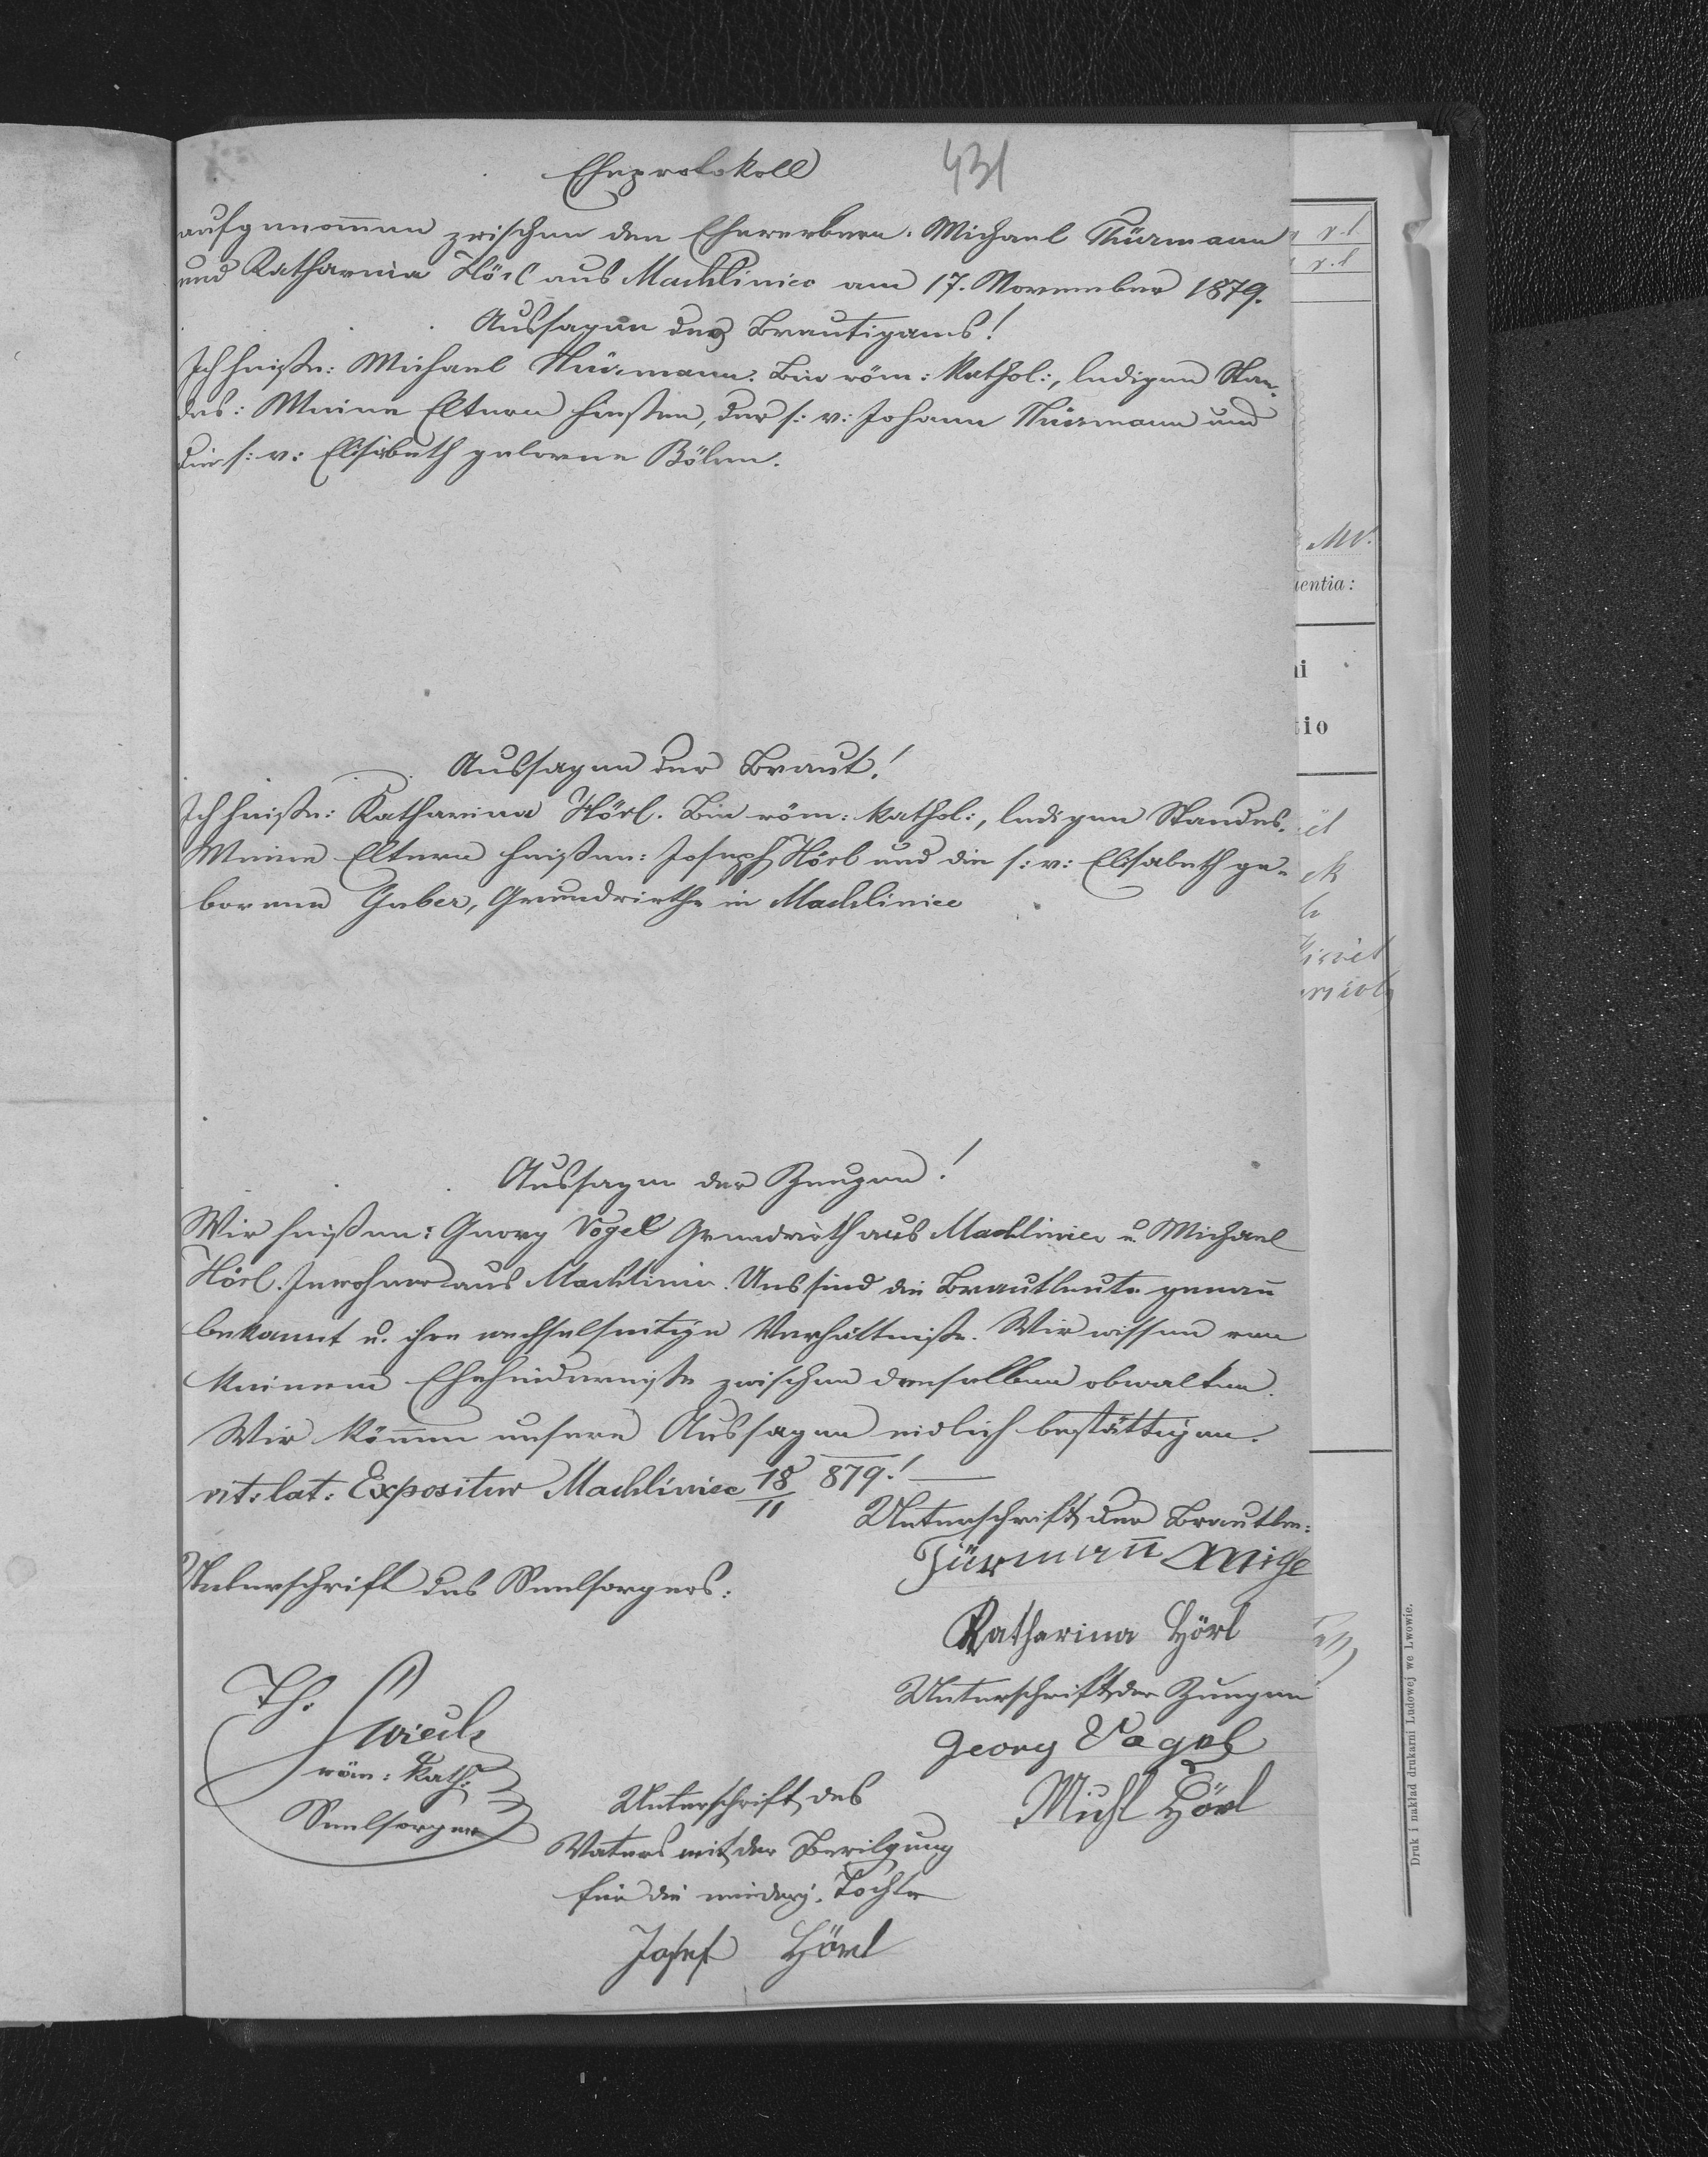 Eheprotokoll 431
aufgenom̄en zwischen den Ehewerbern. Michael Türmann
und Katharina Hörl aus Machliniec am 17. November 1879.
Aussagen des Brautigams!
Ich heiße: Michael Türmann. Bin röm: kathol:, ledigen Stan-
des: Meine Eltern hießen, der s: v: Johann Türmann und
die s: v: Elisabeth geborne Böhm.
Aussagen der Braut!
Ich heiße: Katharina Hörl. Bin röm: kathol:, ledigen Standes.
Meine Eltern heißen: Joseph Hörl und die s: v: Elisabeth ge-
borene Gruber, Grundwirthe in Machliniec
Aussagen der Zeugen!
Wir heißen: Georg Vogel Grundwirth aus Machliniec u. Michael
Hörl. Inwohner aus Machliniec. Uns sind die Brautleute genau
bekannt u. ihre wechselseitige Verhältniße. Wir wissen von
keinem Ehehinderniße zwischen denselben obwalten.
Wir kön̄en unsere Aussagen eidlich bestättigen.
rit: lat: Expositur Machliniec 18/11 879!
Unterschrift der Brautleu:
Türman̄ Miche
Unterschrift des Seelsorgers:
Katharina Hörl
Unterschrift der Zeugen
Th. Swiech
röm: kath:
Seelsorger
Georg Vogel
Michl Hörl
Unterschrift des
Vaters mit der Bewilgung
für die minderj. Tochter
Josef Hörl
r. l.
r. l
entia:
i
tio
Druk i nakład drukarni Ludowej we Lwowie.